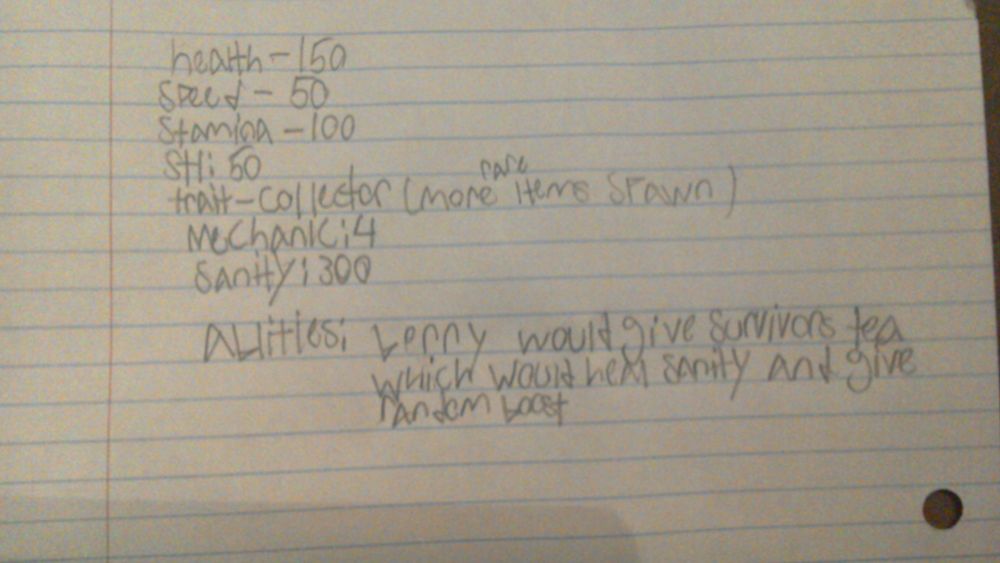 health - 150
speed - 50
Stamina - 100
STH: 50
rare
trait - collector (more items spawn)
Mechanic: 4
Sanity: 300
Abilities: Lenny would give survivors tea
which would heal sanity and give
random boost